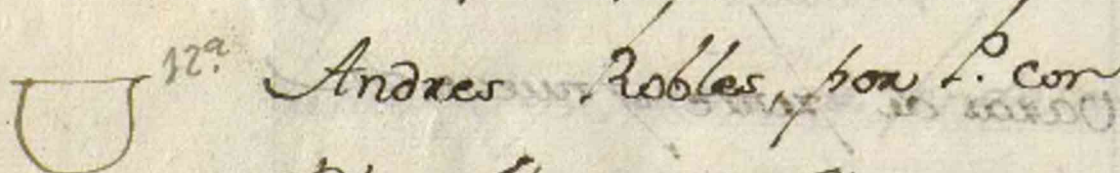 12ª Andres Robles, por P. cor